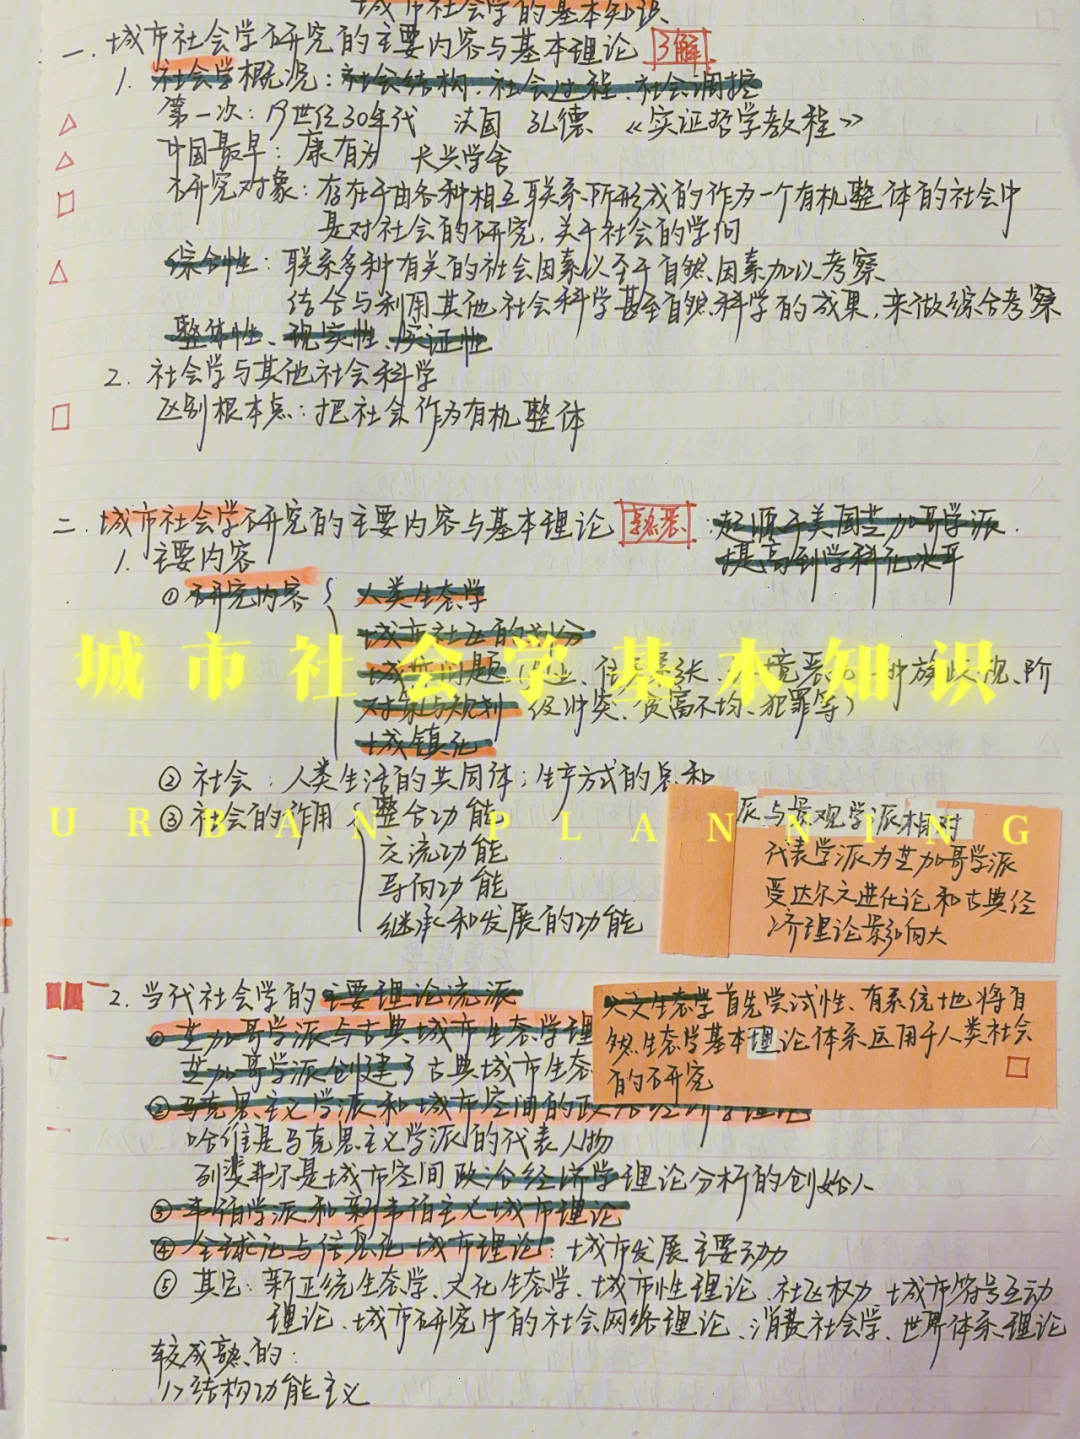 城市社会学的基本知识
一. 城市社会学研究的主要内容与基本理论 了解
1. 社会学概况：社会结构、社会过程、社会调控
第一次：19世纪30年代 法国 孔德 《实证哲学教程》
中国最早：康有为 长兴学舍
研究对象：存在于由各种相互联系所形成的作为一个有机整体的社会中
是对社会的研究，关于社会的学问
综合性：联系多种有关的社会因素以至于自然因素加以考察
结合与利用其他社会科学甚至自然科学的成果，来做综合考察
整体性、现实性、实证性
2. 社会学与其他社会科学
区别根本点：把社会作为有机整体
二. 城市社会学研究的主要内容与基本理论 熟悉：起源于美国芝加哥学派.
提高到学科化水平
1. 主要内容
① 研究内容 { 人类生态学
城市社区的划分
城市问题 住房紧张、环境恶化、种族歧视、阶
对策与规划 级冲突、贫富不均、犯罪等）
城镇化
城市社会学基本知识
② 社会：人类生活的共同体；生产方式的总和
③ 社会的作用 { 整合功能
URBAN PLANNING
交流功能
导向功能
继承和发展的功能
派与景观学派相对
代表学派为芝加哥学派
受达尔文进化论和古典经
济理论影响大
2. 当代社会学的主要理论流派
① 芝加哥学派与古典城市生态学理
芝加哥学派创建了古典城市生态
人文生态学首先尝试性、有系统地将自
然生态学基本理论体系运用于人类社会
的研究
② 马克思主义学派和城市空间的政治经济学理论
哈维是马克思主义学派的代表人物
列斐弗尔是城市空间政治经济学理论分析的创始人
③ 韦伯学派和新韦伯主义城市理论
④ 全球化与信息化城市理论：城市发展主要动力
⑤ 其它：新正统生态学、文化生态学、城市性理论、社区权力、城市符号互动
理论、城市研究中的社会网络理论、消费社会学、世界体系理论
较成熟的：
1> 结构功能主义